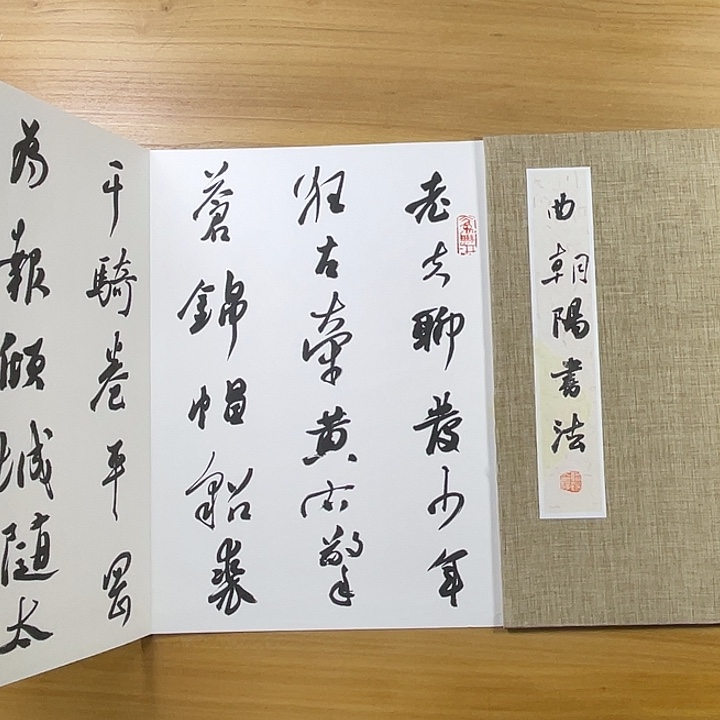 曲朝陽書法
老夫聊發少年
狂左牽黃右擎
蒼錦帽貂裘
千騎卷平岡
為報傾城隨太